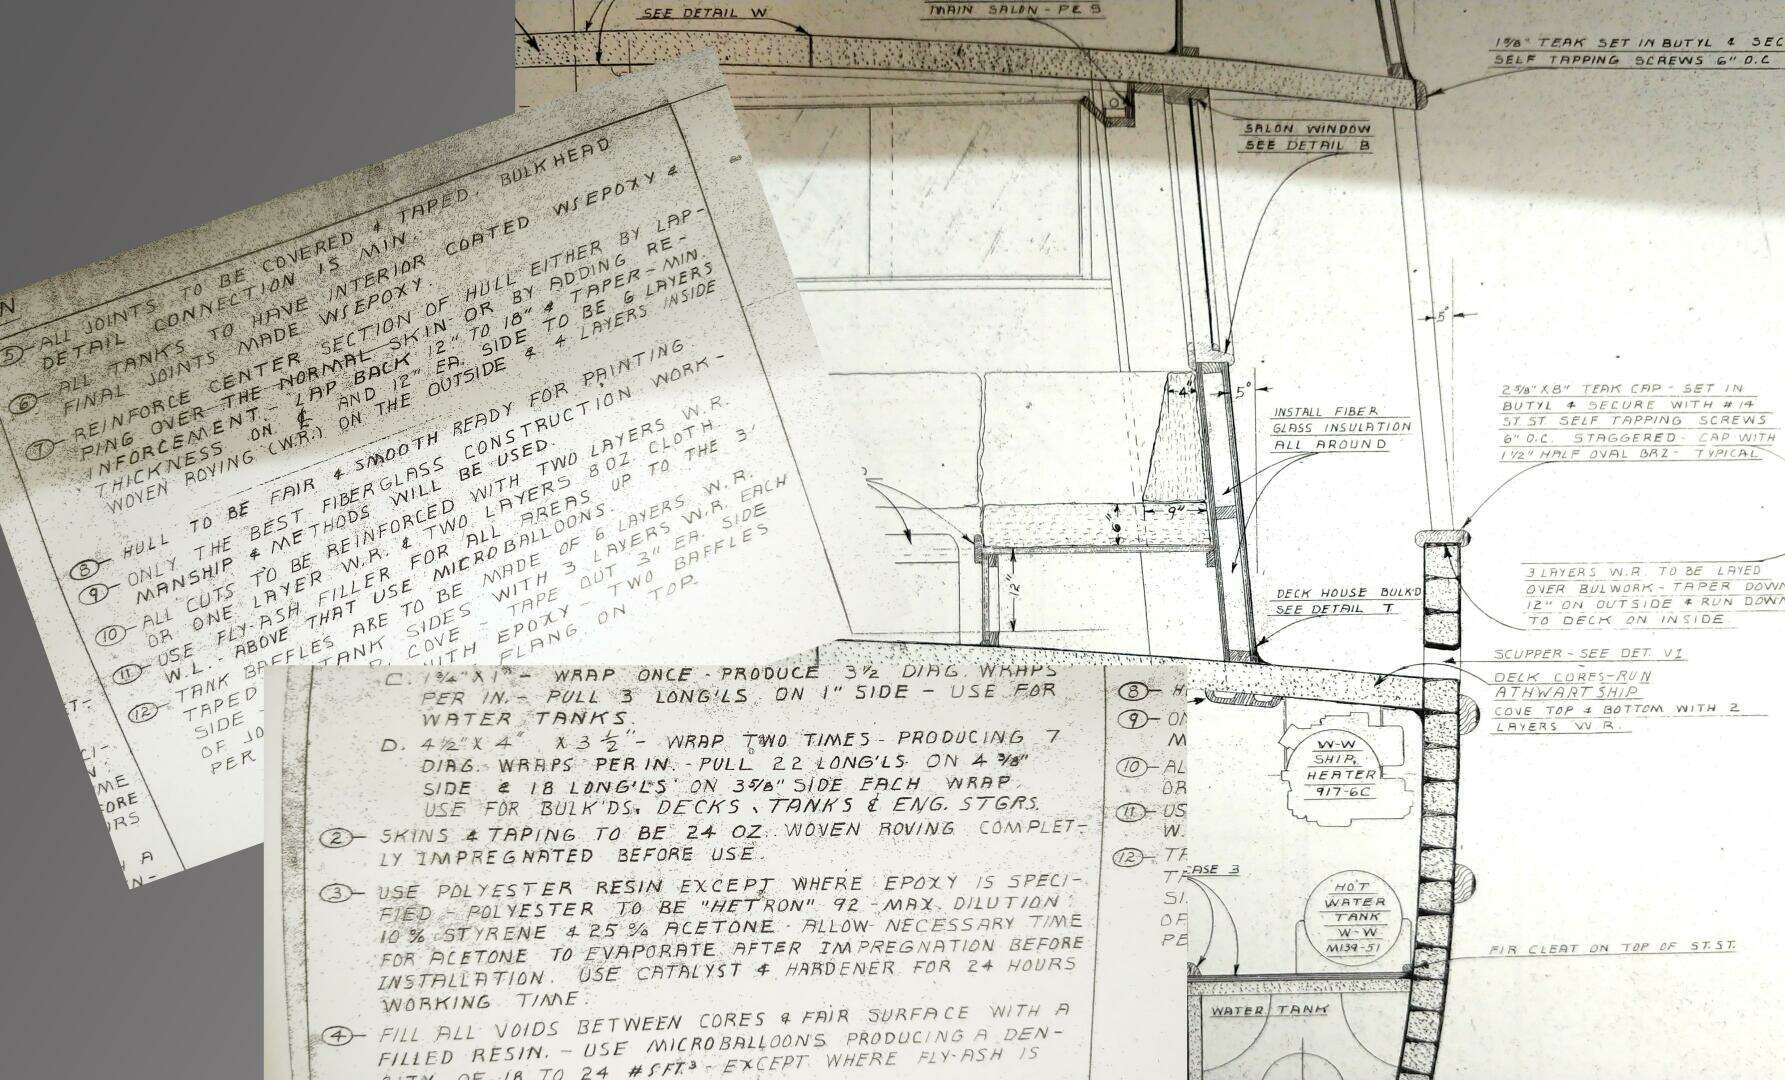 SEE DETAIL W
MAIN SALON - PC 9
1 5/8" TEAK SET IN BUTYL & SEC
SELF TAPPING SCREWS 6" O.C
SALON WINDOW
SEE DETAIL B
5°
2 5/8" X 8" TEAK CAP - SET IN
BUTYL & SECURE WITH #14
ST. ST. SELF TAPPING SCREWS
6" O.C. STAGGERED - CAP WITH
1 1/2" HALF OVAL BRZ - TYPICAL
4"
5°
INSTALL FIBER
GLASS INSULATION
ALL AROUND
9"
6"
12"
DECK HOUSE BULK'D
SEE DETAIL T
3 LAYERS W.R. TO BE LAYED
OVER BULWORK - TAPER DOWN
12" ON OUTSIDE & RUN DOWN
TO DECK ON INSIDE
SCUPPER - SEE DET. V1
DECK CORES - RUN
ATHWARTSHIP
COVE TOP & BOTTOM WITH 2
LAYERS W.R.
W-W
SHIP.
HEATER
917-6C
HOT
WATER
TANK
W-W
M139-51
FIR CLEAT ON TOP OF ST.ST.
ASE 3
WATER TANK
N
5 - ALL JOINTS TO BE COVERED & TAPED. BULKHEAD
DETAIL CONNECTION IS MIN.
6 - ALL TANKS TO HAVE INTERIOR COATED W/EPOXY &
FINAL JOINTS MADE W/EPOXY.
7 - REINFORCE CENTER SECTION OF HULL EITHER BY LAP-
PING OVER THE NORMAL SKIN OR BY ADDING RE-
INFORCEMENT - LAP BACK 12" TO 18" & TAPER - MIN.
THICKNESS ON ℄ AND 12" EA. SIDE TO BE 6 LAYERS
WOVEN ROVING (W.R.) ON THE OUTSIDE & 4 LAYERS INSIDE
8 - HULL TO BE FAIR & SMOOTH READY FOR PAINTING
9 - ONLY THE BEST FIBERGLASS CONSTRUCTION WORK-
MANSHIP & METHODS WILL BE USED.
10 - ALL CUTS TO BE REINFORCED WITH TWO LAYERS W.R.
OR ONE LAYER W.R. & TWO LAYERS 8 OZ CLOTH.
11 - USE FLY-ASH FILLER FOR ALL AREAS UP TO THE 3'
W.L. - ABOVE THAT USE MICROBALLOONS.
12 - TANK BAFFLES ARE TO BE MADE OF 6 LAYERS W.R.
TAPED TANK SIDES WITH 3 LAYERS W.R. EACH
SIDE - COVE - TAPE OUT 3" EA. SIDE
OF JO WITH EPOXY - TWO BAFFLES
PER FLANG ON TOP.
C. 1 3/4" X 1" - WRAP ONCE - PRODUCE 3 1/2 DIAG WRAPS
PER IN. - PULL 3 LONG'LS ON 1" SIDE - USE FOR
WATER TANKS.
D. 4 1/2" X 4" X 3 1/2" - WRAP TWO TIMES - PRODUCING 7
DIAG. WRAPS PER IN. - PULL 22 LONG'LS ON 4 3/8"
SIDE & 18 LONG'LS ON 3 5/8" SIDE EACH WRAP.
USE FOR BULK'DS, DECKS, TANKS & ENG. STGRS.
2 - SKINS & TAPING TO BE 24 OZ. WOVEN ROVING COMPLET-
LY IMPREGNATED BEFORE USE.
3 - USE POLYESTER RESIN EXCEPT WHERE EPOXY IS SPECI-
FIED - POLYESTER TO BE "HETRON" 92 - MAX. DILUTION
10% STYRENE & 25% ACETONE - ALLOW NECESSARY TIME
FOR ACETONE TO EVAPORATE AFTER IMPREGNATION BEFORE
INSTALLATION. USE CATALYST & HARDENER FOR 24 HOURS
WORKING TIME.
4 - FILL ALL VOIDS BETWEEN CORES & FAIR SURFACE WITH A
FILLED RESIN. - USE MICROBALLOONS PRODUCING A DEN-
SITY OF 18 TO 24 #S/FT.³ - EXCEPT WHERE FLY-ASH IS
8 - H
9 - ON
M
10 - AL
OR
11 - US
W.
12 - TA
TA
SI
OF
PE